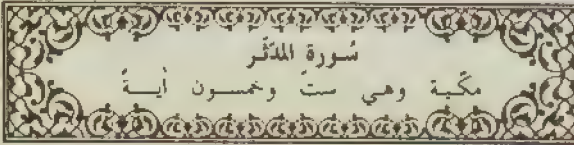 سُورة المدّثّر
مكّية وهي ستّ وخمسون أيــةً